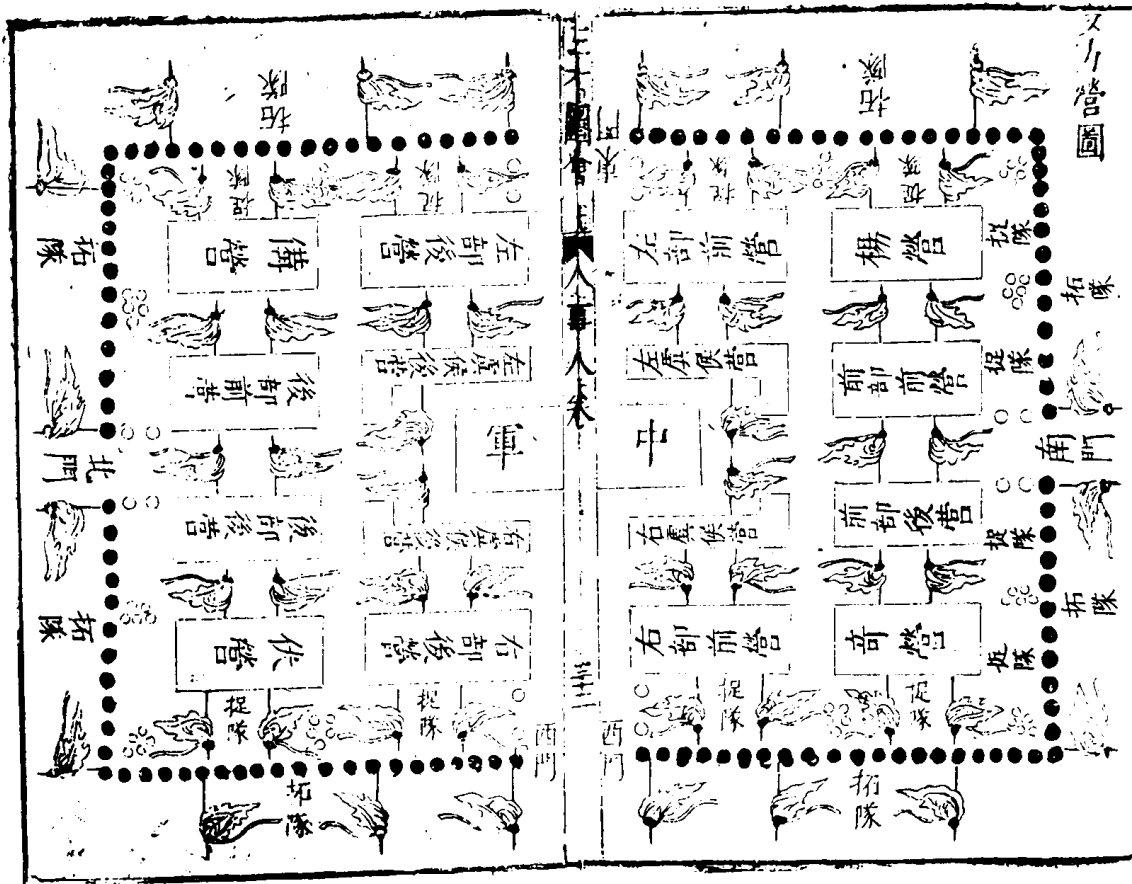 營圖
拓隊
捉隊
捉隊
楊營
左部前營
捉隊
拓隊
前部前營
左虞候營
捉隊
南門
中
前部後營
右虞候營
捉隊
拓隊
奇營
右部前營
捉隊
捉隊
西門
拓隊
人事八卷
拓隊
捉隊
左部後營
備營
拓隊
左虞候後營
後部前營
軍
北門
右虞候後營
後部後營
拓隊
右部後營
伏營
捉隊
捉隊
西門
拓隊